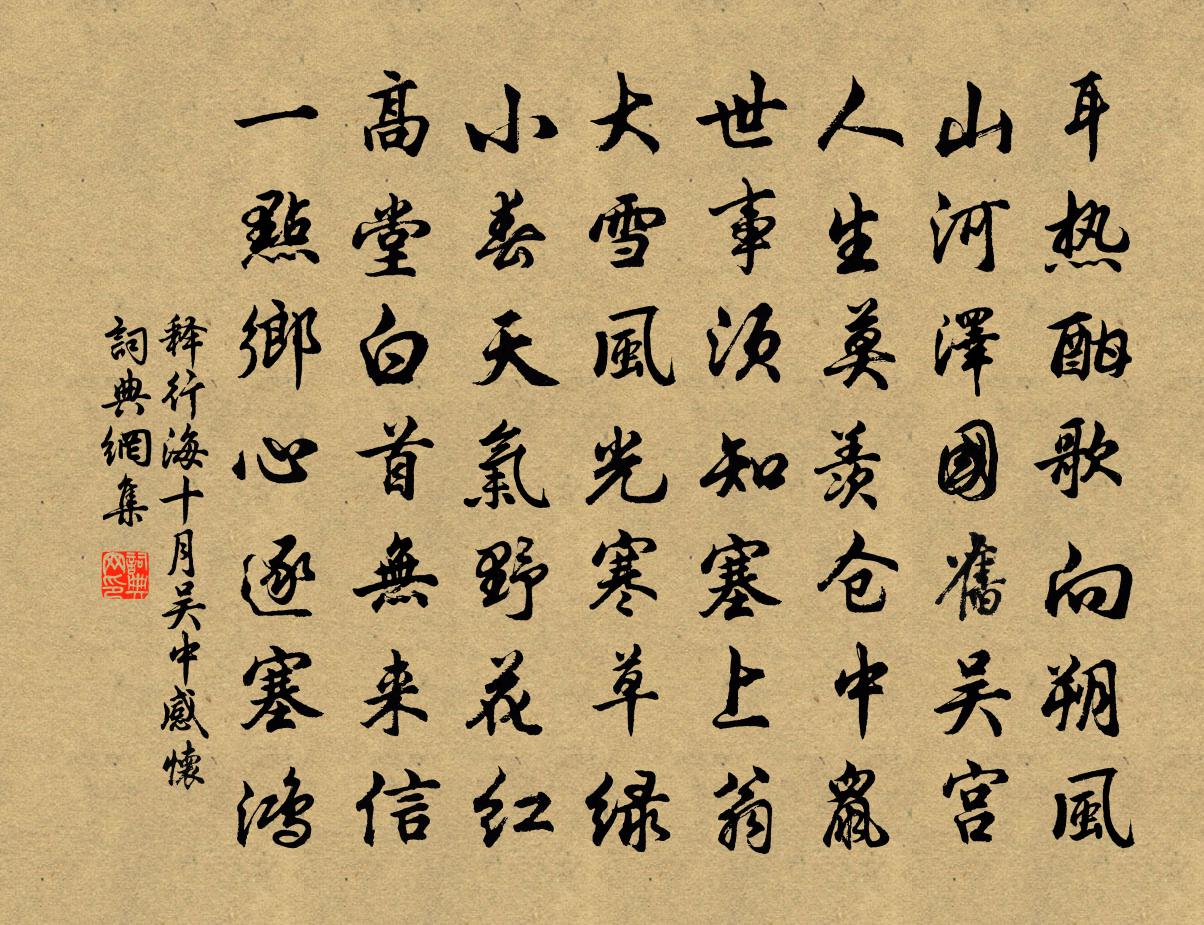 耳热酣歌向朔風
山河澤國舊吴宫
人生莫羡仓中鼠
世事须知塞上翁
大雪風光寒草绿
小春天氣野花红
高堂白首無来信
一點鄉心逐塞鸿
释行海十月吴中感懷
詞典網集
詞典
网印